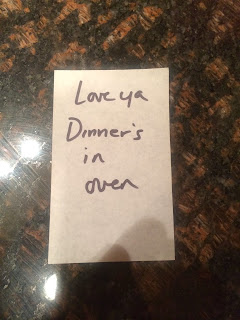 Love ya
Dinner's
in
oven